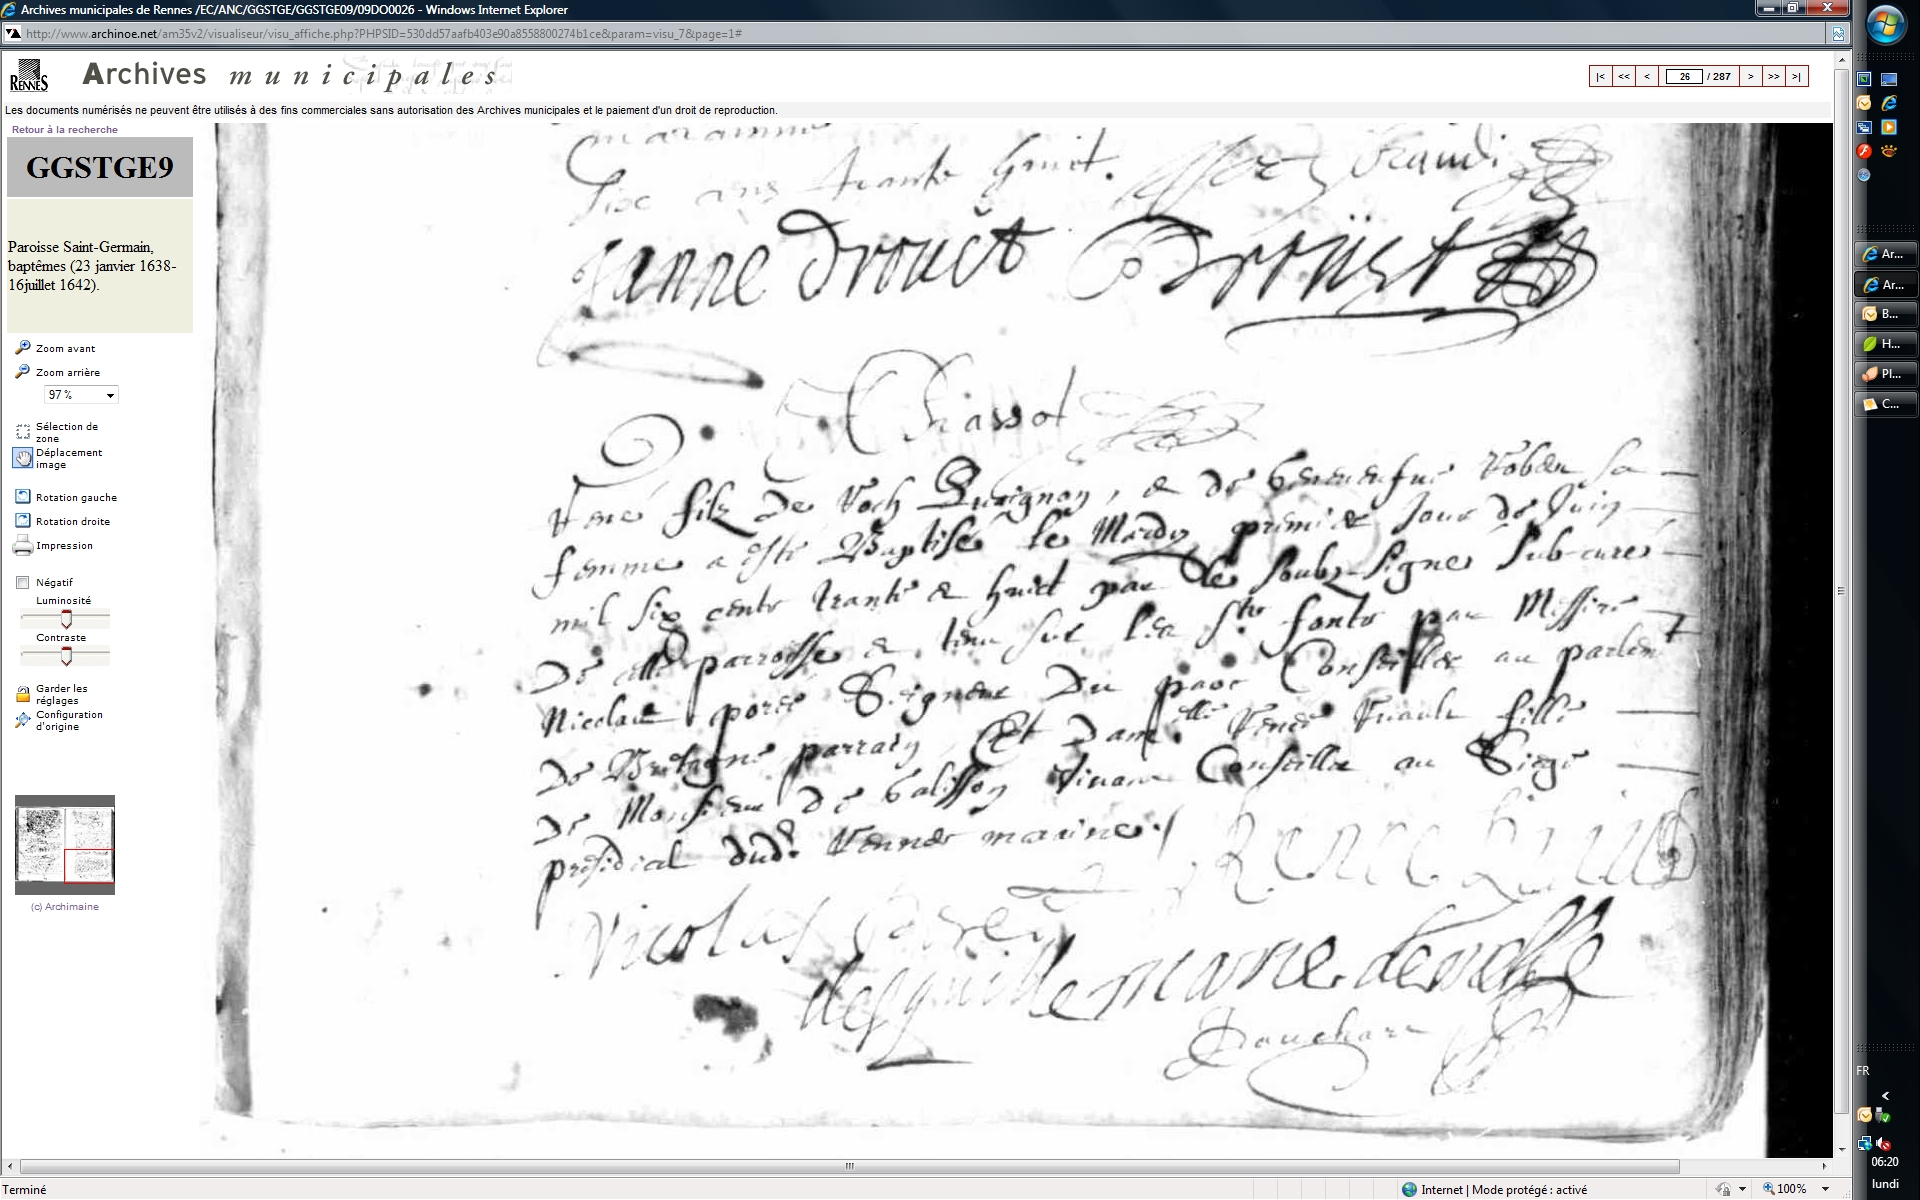 Archives municipales de Rennes /EC/ANC/GGSTGE/GGSTGE09/09DO0026 - Windows Internet Explorer
http://www.archinoe.net/am35v2/visualiseur/visu_affiche.php?PHPSID=530dd57aafb403e90a8558800274b1ce&param=visu_7&page=1#
RENNES
Archives municipales
|< << < 26 / 287 > >> >|
Les documents numérisés ne peuvent être utilisés à des fins commerciales sans autorisation des Archives municipales et le paiement d'un droit de reproduction.
Retour à la recherche
GGSTGE9
Paroisse Saint-Germain,
baptêmes (23 janvier 1638-
16juillet 1642).
Zoom avant
Zoom arrière
97 %
Sélection de
zone
Déplacement
image
Rotation gauche
Rotation droite
Impression
Négatif
Luminosité
Contraste
Garder les
réglages
Configuration
d'origine
(c) Archimaine
six cens trante huict.
janne Drouet Drouet
Chassot
René filz de Roch , & de Geneviefve sa
femme a esté Baptisé le Mardy premier Jour de Juin
mil six cents trante & huict par le soubz-signé sub-curé
de cette parroisse & tenu sur les sts fonts par Messire
Nicolas porée Seigneur Du parc Conseiller au parlemt
De Bretagne parrain, Et Damlle Renée Ruault fille
de Monsieur de Conseiller au Siege
presidial dud. Rennes maraine
Nicolas Porée
Ar...
Ar...
B...
H...
Pl...
C...
FR
06:20
lundi
Terminé
Internet | Mode protégé : activé
100%